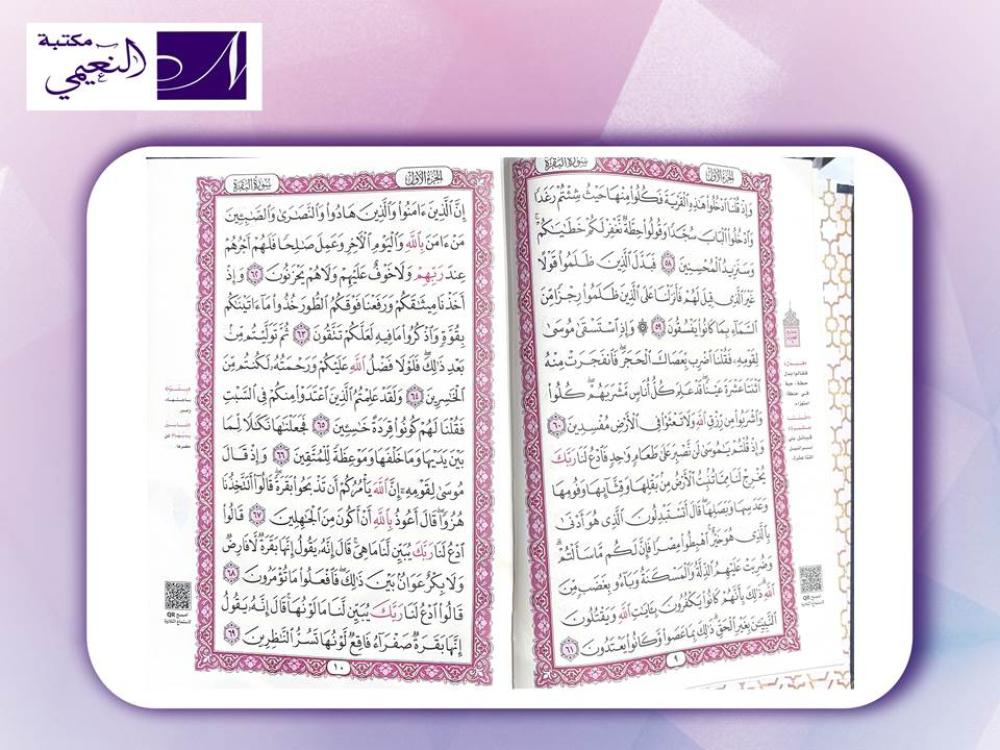 مكتبة
النعيمي
سورة البقرة
الجزء الأول
وَإِذْ قُلْنَا ادْخُلُوا هَٰذِهِ الْقَرْيَةَ فَكُلُوا مِنْهَا حَيْثُ شِئْتُمْ رَغَدًا
وَادْخُلُوا الْبَابَ سُجَّدًا وَقُولُوا حِطَّةٌ نَغْفِرْ لَكُمْ خَطَايَاكُمْ
وَسَنَزِيدُ الْمُحْسِنِينَ ٥٨ فَبَدَّلَ الَّذِينَ ظَلَمُوا قَوْلًا
غَيْرَ الَّذِي قِيلَ لَهُمْ فَأَنزَلْنَا عَلَى الَّذِينَ ظَلَمُوا رِجْزًا مِّنَ
السَّمَاءِ بِمَا كَانُوا يَفْسُقُونَ ٥٩ ۞ وَإِذِ اسْتَسْقَىٰ مُوسَىٰ
لِقَوْمِهِ فَقُلْنَا اضْرِب بِّعَصَاكَ الْحَجَرَ ۖ فَانفَجَرَتْ مِنْهُ
اثْنَتَا عَشْرَةَ عَيْنًا ۖ قَدْ عَلِمَ كُلُّ أُنَاسٍ مَّشْرَبَهُمْ ۖ كُلُوا
وَاشْرَبُوا مِن رِّزْقِ اللَّهِ وَلَا تَعْثَوْا فِي الْأَرْضِ مُفْسِدِينَ ٦٠
وَإِذْ قُلْتُمْ يَا مُوسَىٰ لَن نَّصْبِرَ عَلَىٰ طَعَامٍ وَاحِدٍ فَادْعُ لَنَا رَبَّكَ
يُخْرِجْ لَنَا مِمَّا تُنبِتُ الْأَرْضُ مِن بَقْلِهَا وَقِثَّائِهَا وَفُومِهَا
وَعَدَسِهَا وَبَصَلِهَا ۖ قَالَ أَتَسْتَبْدِلُونَ الَّذِي هُوَ أَدْنَىٰ
بِالَّذِي هُوَ خَيْرٌ ۚ اهْبِطُوا مِصْرًا فَإِنَّ لَكُم مَّا سَأَلْتُمْ ۗ
وَضُرِبَتْ عَلَيْهِمُ الذِّلَّةُ وَالْمَسْكَنَةُ وَبَاءُوا بِغَضَبٍ مِّنَ
اللَّهِ ۗ ذَٰلِكَ بِأَنَّهُمْ كَانُوا يَكْفُرُونَ بِآيَاتِ اللَّهِ وَيَقْتُلُونَ
النَّبِيِّينَ بِغَيْرِ الْحَقِّ ۗ ذَٰلِكَ بِمَا عَصَوا وَّكَانُوا يَعْتَدُونَ ٦١
٩
سورة البقرة
الجزء الأول
إِنَّ الَّذِينَ ءَامَنُوا وَالَّذِينَ هَادُوا وَالنَّصَٰرَىٰ وَالصَّٰبِـِٔينَ
مَنْ ءَامَنَ بِاللَّهِ وَالْيَوْمِ الْأٓخِرِ وَعَمِلَ صَٰلِحًا فَلَهُمْ أَجْرُهُمْ
عِندَ رَبِّهِمْ وَلَا خَوْفٌ عَلَيْهِمْ وَلَا هُمْ يَحْزَنُونَ ٦٢ وَإِذْ
أَخَذْنَا مِيثَٰقَكُمْ وَرَفَعْنَا فَوْقَكُمُ الطُّورَ خُذُوا مَا ءَاتَيْنَٰكُم
بِقُوَّةٍ وَاذْكُرُوا مَا فِيهِ لَعَلَّكُمْ تَتَّقُونَ ٦٣ ثُمَّ تَوَلَّيْتُم مِّنۢ
بَعْدِ ذَٰلِكَ ۖ فَلَوْلَا فَضْلُ اللَّهِ عَلَيْكُمْ وَرَحْمَتُهُ لَكُنتُم مِّنَ
الْخَٰسِرِينَ ٦٤ وَلَقَدْ عَلِمْتُمُ الَّذِينَ اعْتَدَوْا مِنكُمْ فِي السَّبْتِ
فَقُلْنَا لَهُمْ كُونُوا قِرَدَةً خَٰسِـِٔينَ ٦٥ فَجَعَلْنَٰهَا نَكَٰلًا لِّمَا
بَيْنَ يَدَيْهَا وَمَا خَلْفَهَا وَمَوْعِظَةً لِّلْمُتَّقِينَ ٦٦ وَإِذْ قَالَ
مُوسَىٰ لِقَوْمِهِ إِنَّ اللَّهَ يَأْمُرُكُمْ أَن تَذْبَحُوا بَقَرَةً ۖ قَالُوا أَتَتَّخِذُنَا
هُزُوًا ۖ قَالَ أَعُوذُ بِاللَّهِ أَنْ أَكُونَ مِنَ الْجَٰهِلِينَ ٦٧ قَالُوا
ادْعُ لَنَا رَبَّكَ يُبَيِّن لَّنَا مَا هِيَ ۚ قَالَ إِنَّهُ يَقُولُ إِنَّهَا بَقَرَةٌ لَّا فَارِضٌ
وَلَا بِكْرٌ عَوَانٌۢ بَيْنَ ذَٰلِكَ ۖ فَافْعَلُوا مَا تُؤْمَرُونَ ٦٨
قَالُوا ادْعُ لَنَا رَبَّكَ يُبَيِّن لَّنَا مَا لَوْنُهَا ۚ قَالَ إِنَّهُ يَقُولُ
إِنَّهَا بَقَرَةٌ صَفْرَاءُ فَاقِعٌ لَّوْنُهَا تَسُرُّ النَّٰظِرِينَ ٦٩
١٠